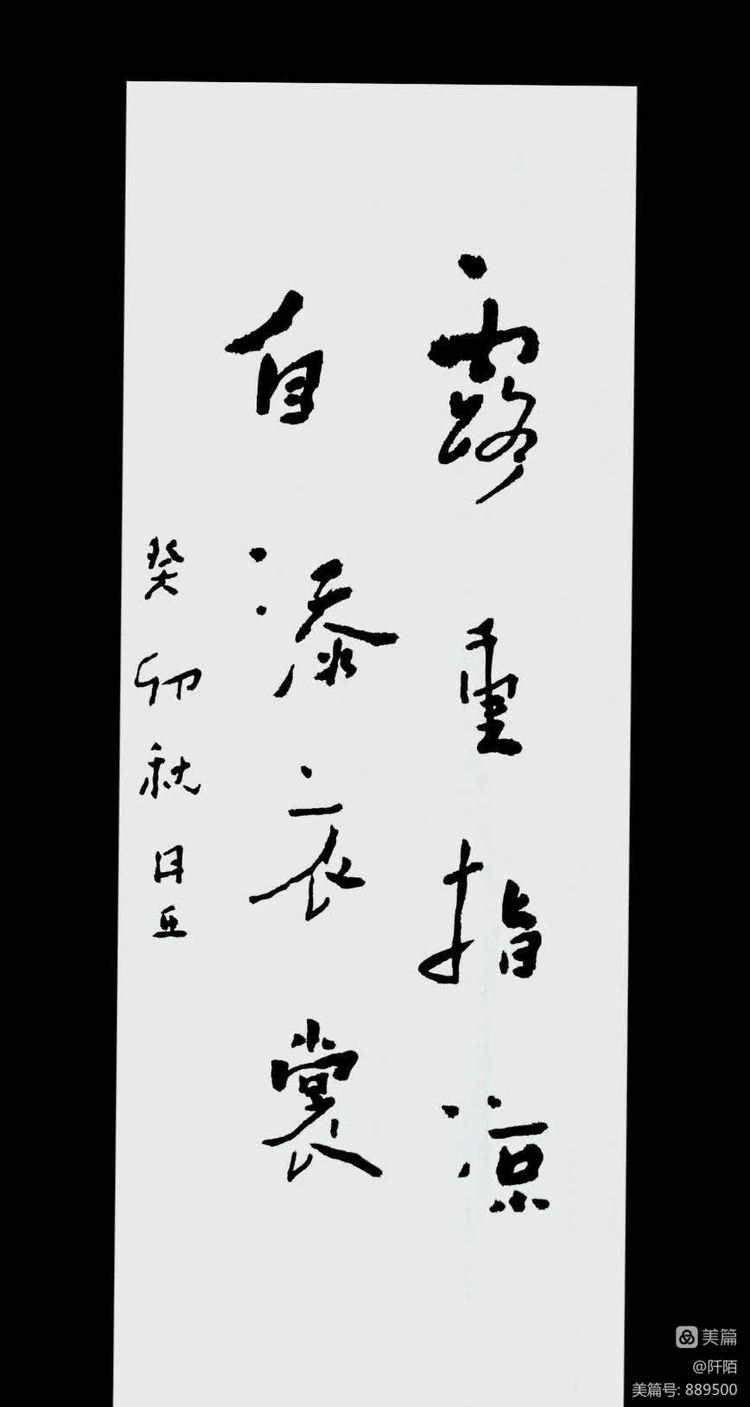 露重指凉
自添衣裳
癸卯秋月丘
美篇
@阡陌
美篇号: 889500